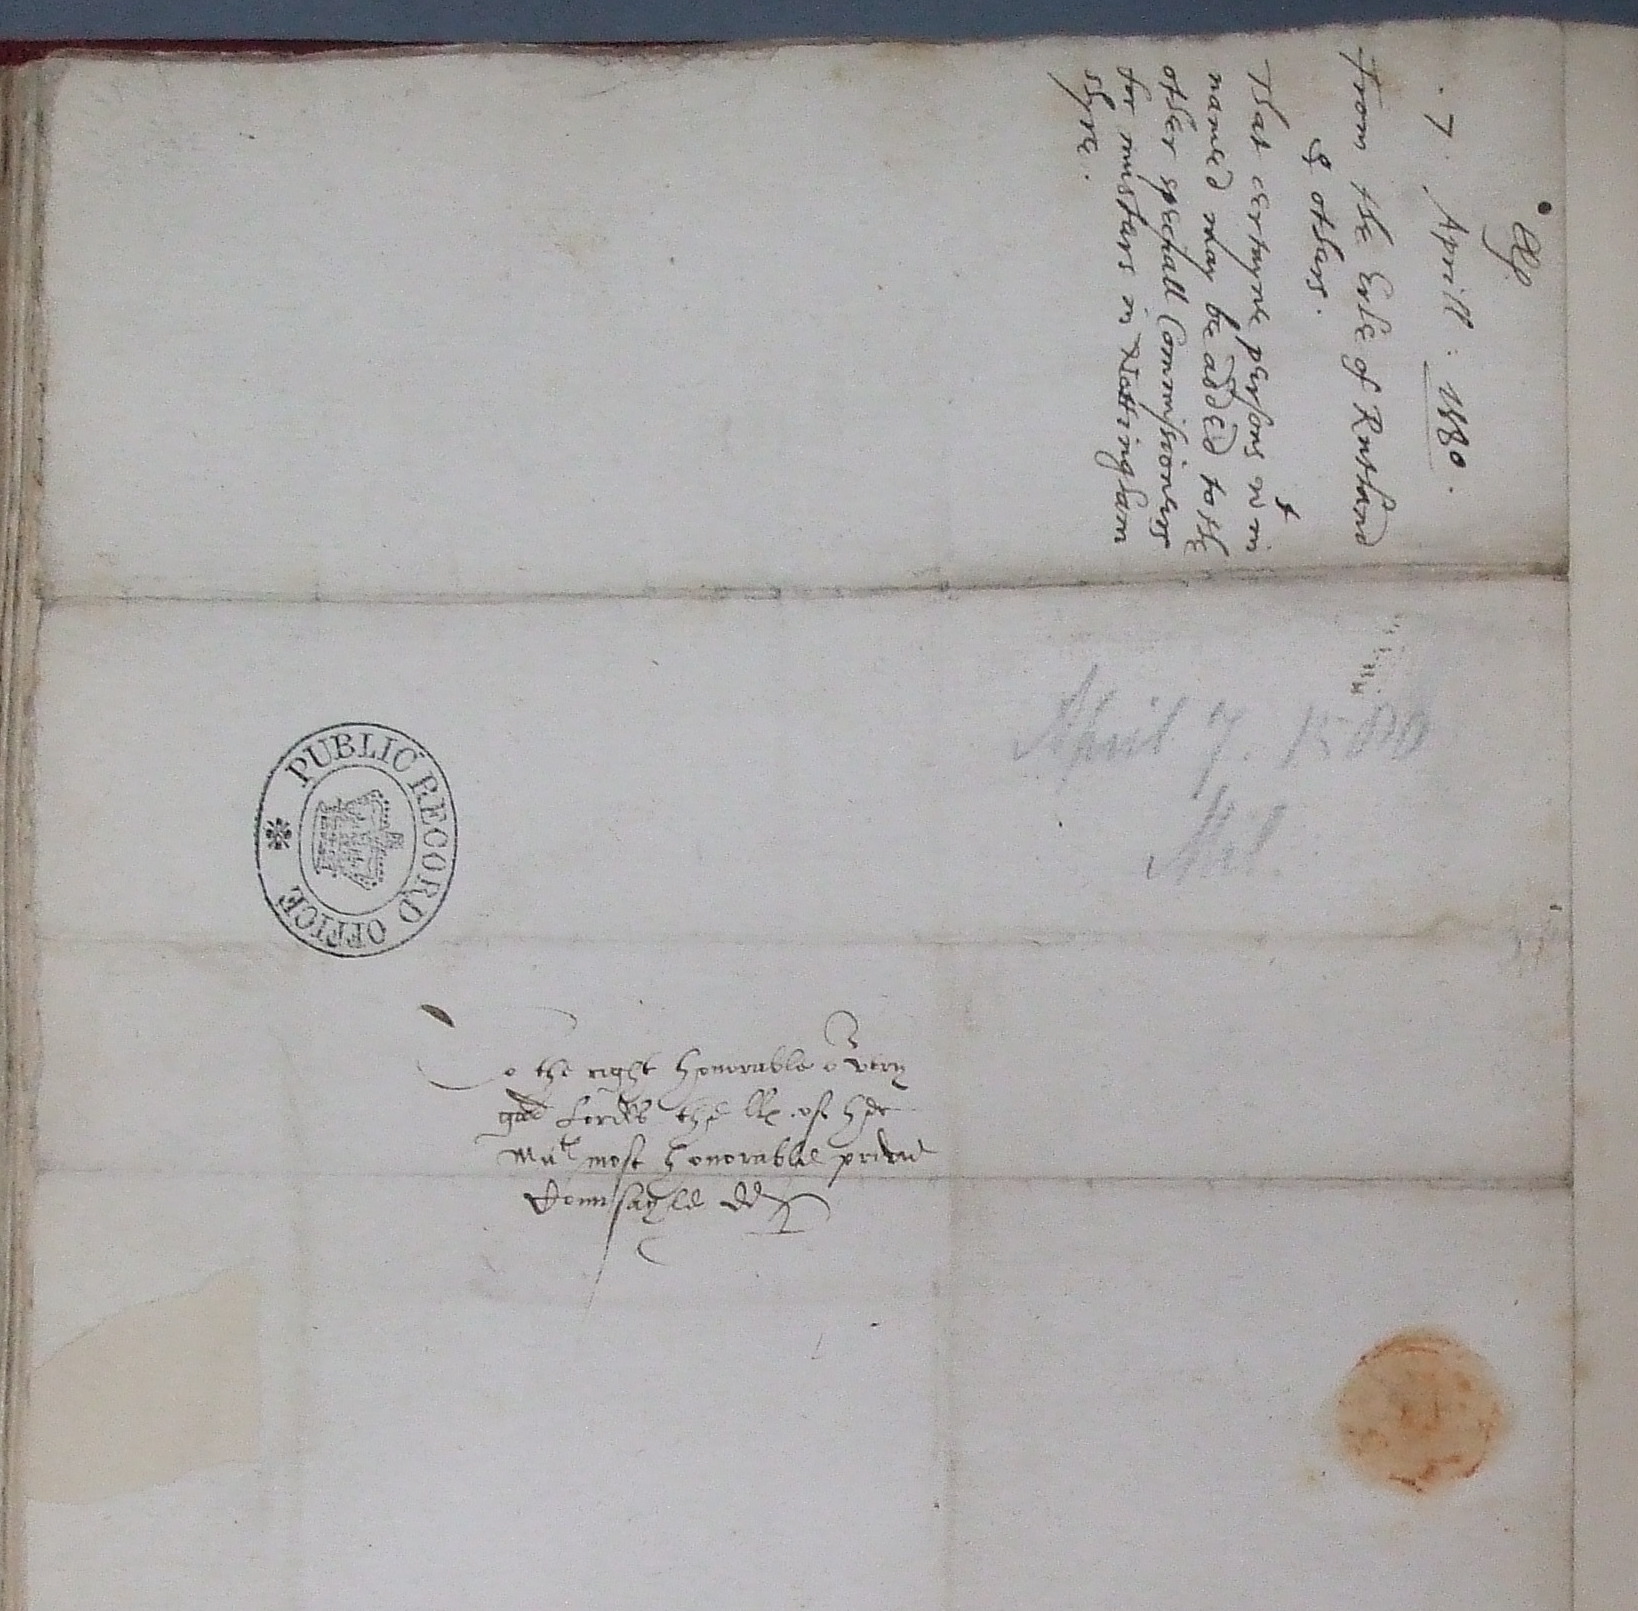 . 7 . Aprill : 1580 .
From the Erle of Rutland
& others .
That certayne persons wt in
named may be added to the
other speciall Commissioners
for musters in Nottingham
shyre .
April 7. 1580
Mil.
PUBLIC RECORD OFFICE
To the right honorable or very
good Lordes the LLs of her
Mats most honorable privie
Counsayle dd